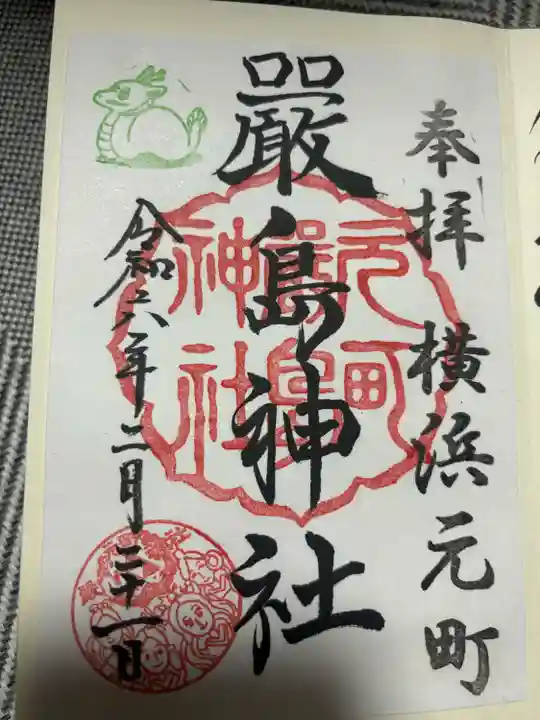 奉拝 横浜元町
嚴島神社
元町
嚴島
神社
令和六年二月二十一日